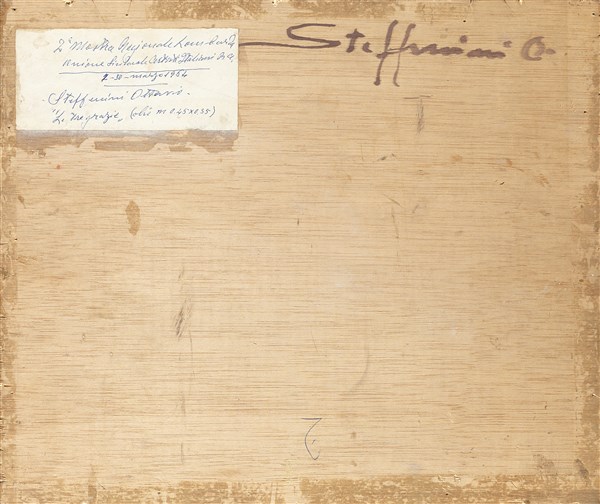 2ª Mostra Regionale Lombarda
Unione Sindacale Artisti Italiani B.A.
2-30-marzo 1964
Steffenini Ottavio
"Le tre grazie" (olio m 0.45x0.55)
Steffenini O.